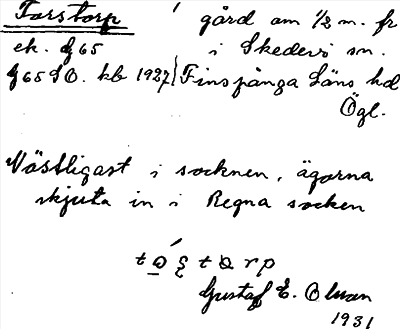 Torstorp gård om 1/2 m. fr
ek. G 65 i Skedevi sn.
G 65 SO. kb 1927 Finspånga Läns hd
Ögl.
Västligast i socknen, ägorna
skjuta in i Regna socken
Gustaf E. Olsson
1931